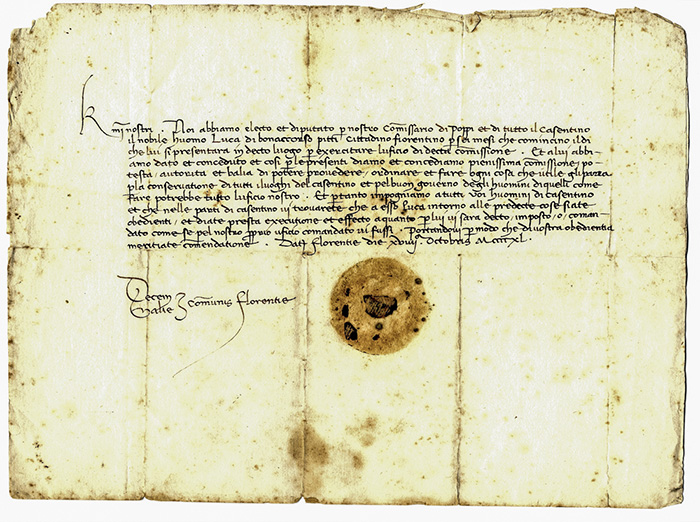 Kmi nostri . Noi abbiamo electo et diputato p nostro Comissario di Poppi et di tutto il Casentino
il nobile huomo Luca di bonaccorso pitti Cittadino fiorentino p sei mesi che comincino il di
che lui si presentara in decto luogo p exercitare luficio di decta Comissione . Et a lui abbi-
amo dato et conceduto et cosi p le presenti diamo et concediamo pienissima comissione, po-
testa, autorita et balia di potere provedere, ordinare et fare ogni cosa che utile gli parra
p la conservatione di tutti i luoghi del casentino et pel buon governo degli huomini di quelli come
fare potrebbe tutto luficio nostro . Et p tanto impogniamo a tutti voi huomini di Casentino
et che nelle parti di casentino vi trovarete che a esso Luca intorno alle predette cose siate
obedienti, et diate presta executione et effecto a quanto p lui vi sara decto, imposto, o coman-
dato come se pel nostro pprio uficio comandato vi fussi . Portandovi p modo che di vostra obedientia
meritiate comendatione . Dat Florentie die xviii Octobris Mccccxl .
Decem
Balie Comunis Florentie